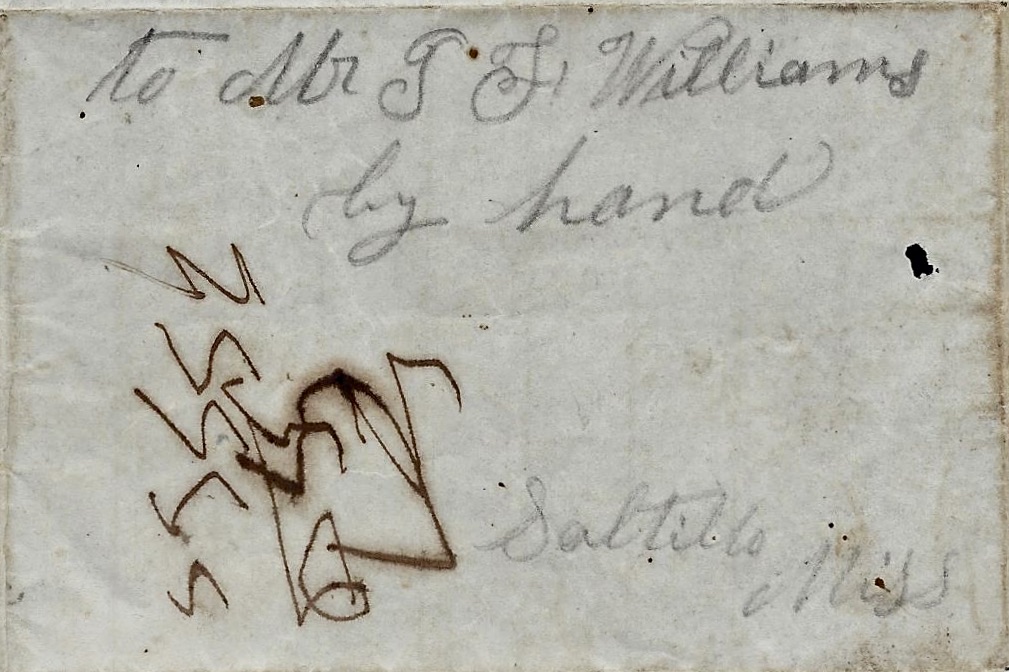 to Mr T. F. Williams
by hand
Saltillo
Miss